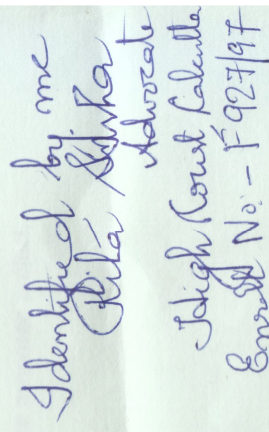 Identified by me
Advocate
High Court Calcutta
Enrolt No:- F 927/97